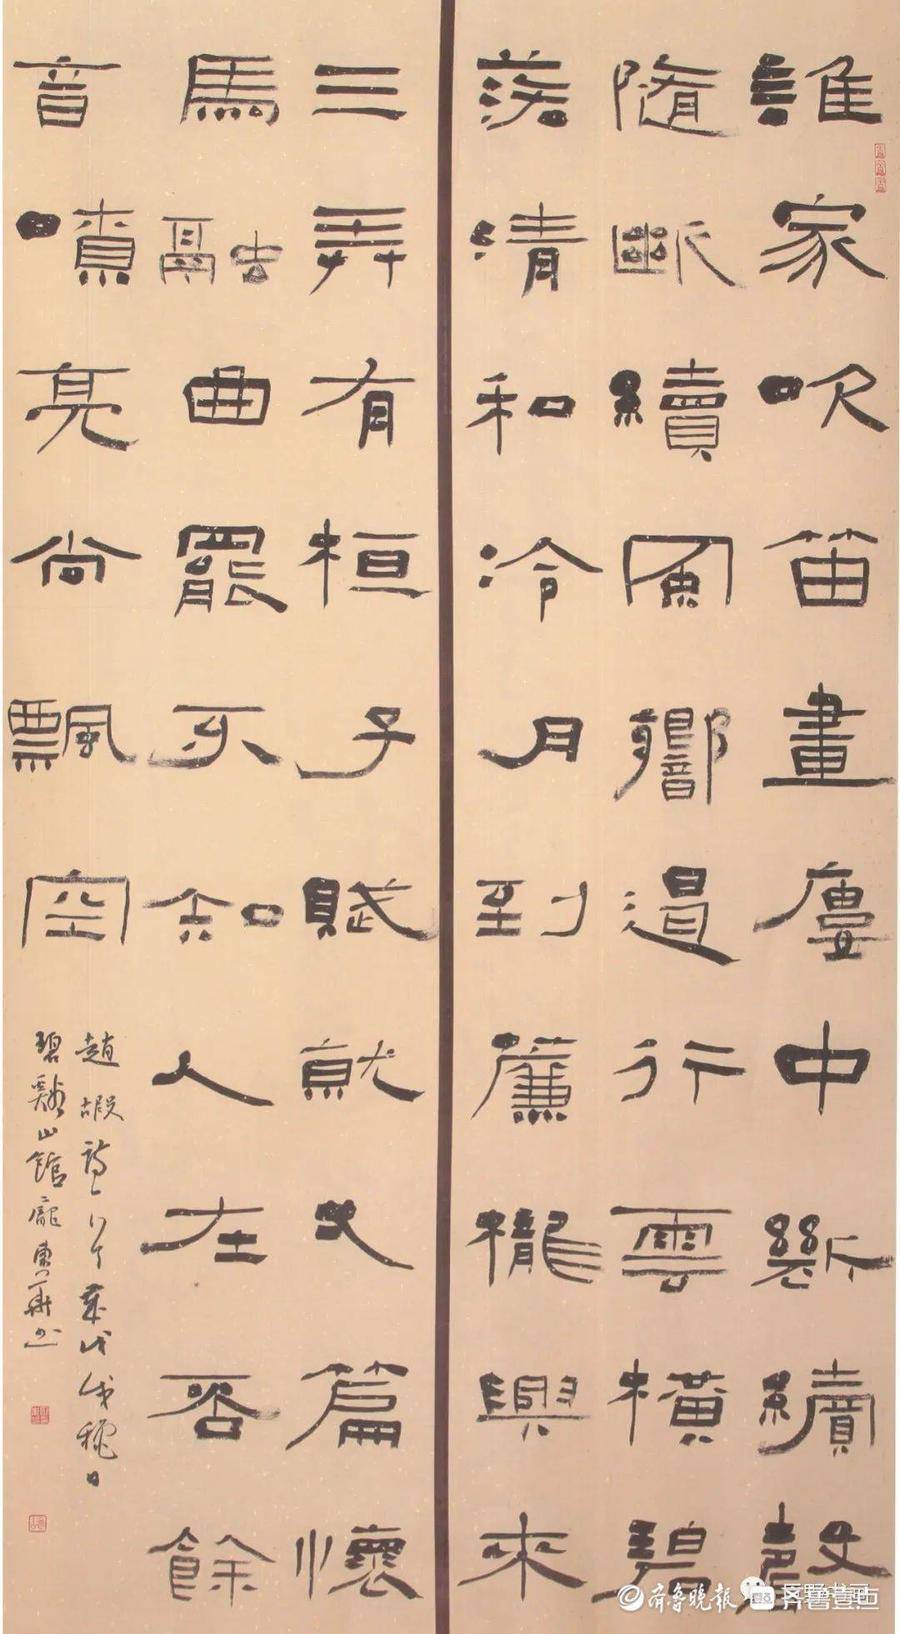 誰家吹笛畫廔中斷續聲
隨斷續風響遏行雲橫碧
落清和冷月到簾櫳興來
三弄有桓子賦就篇懷
馬融曲罷不知人在否餘
音噴亮尚飄空
趙嘏詩一首 歲戊戌穐日
碧谿山館龐
齐鲁晚报 齐鲁壹点